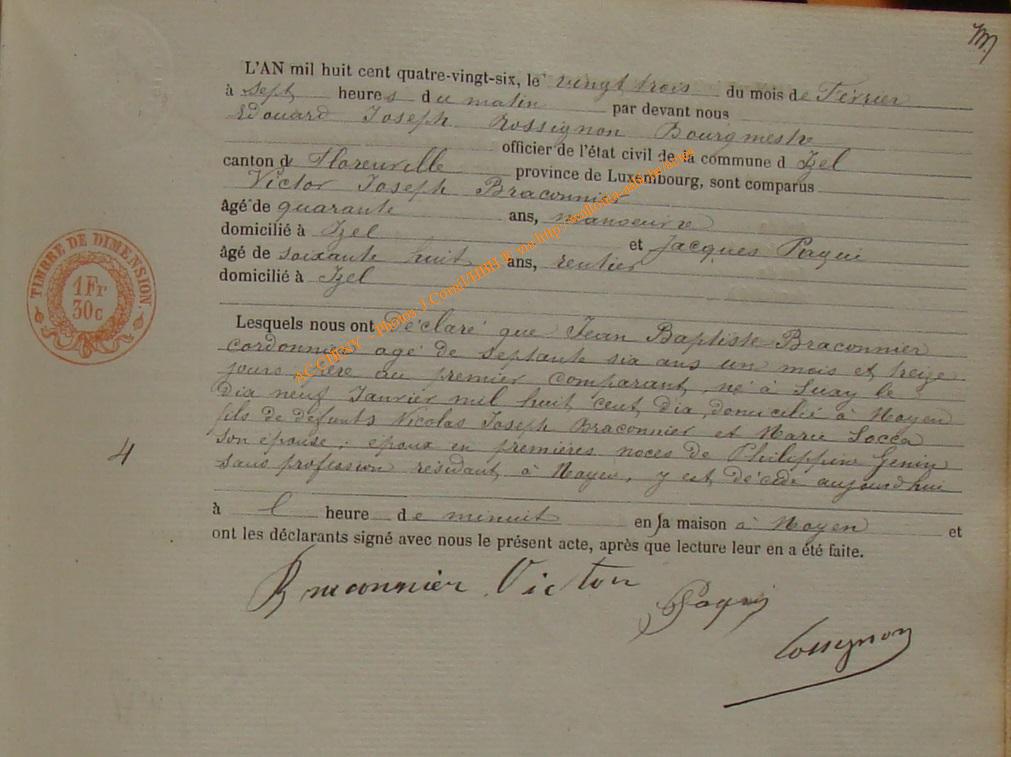 L'AN mil huit cent quatre-vingt-six, le vingt trois du mois de Février
à sept heures du matin par devant nous
Edouard Joseph Rossignon Bourgmestre
officier de l'état civil de la commune d Izel
canton de Florenville province de Luxembourg, sont comparus
Victor Joseph Braconnier
âgé de quarante ans, manoeuvre
domicilié à Izel et Jacques Paqui
âgé de soixante huit ans, rentier
domicilié à Izel
Lesquels nous ont déclaré que Jean Baptiste Braconnier
cordonnier agé de septante six ans un mois et treize
jours, père au premier comparant, né à Suxy le
dix neuf Janvier mil huit cent dix, domicilié à Moyen
fils de défunts Nicolas Joseph Braconnier et Marie Socca
son épouse; époux en premières noces de Philippine Genin
sans profession résidant à Moyen, y est décédé aujourd'hui
à l heure de minuit en sa maison à Moyen et
ont les déclarants signé avec nous le présent acte, après que lecture leur en a été faite.
Braconnier Victor
Paqui
Rossignon
4
TIMBRE DE DIMENSION
1 Fr
30 c